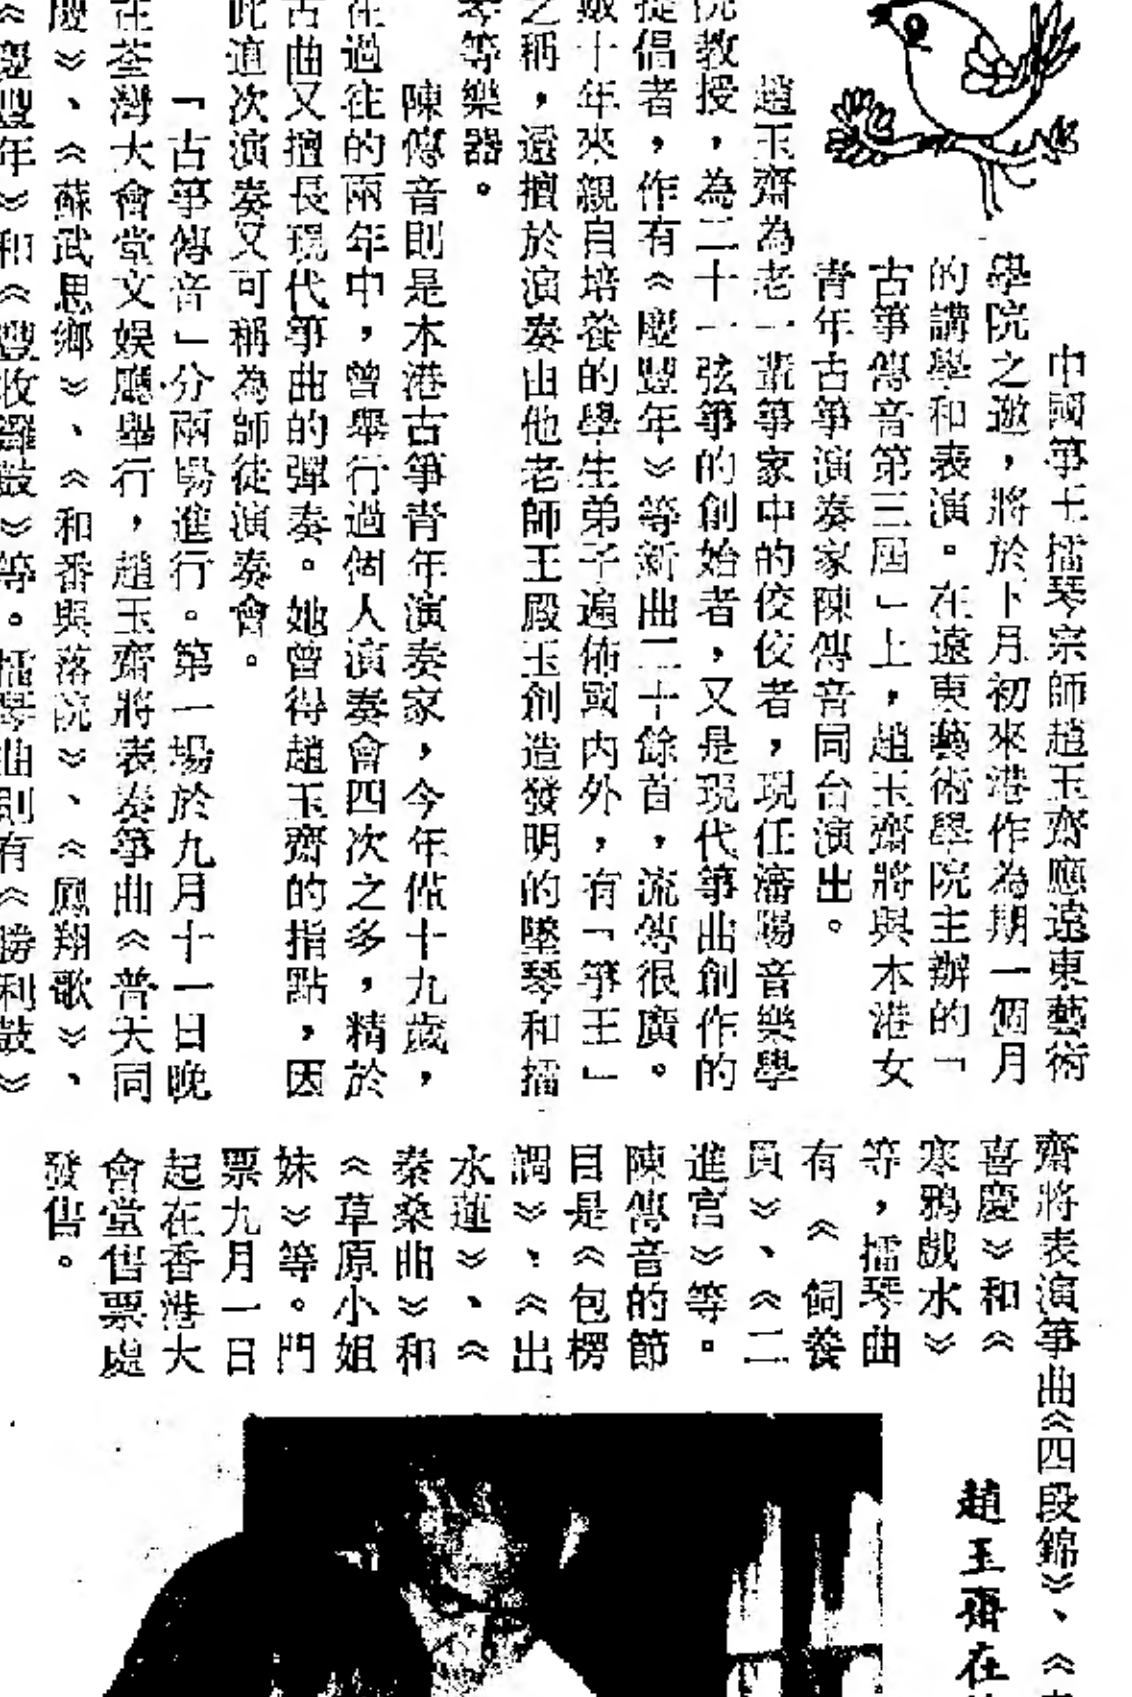 中國箏王擂琴宗師趙玉齋應遠東藝術
學院之邀，將於下月初來港作為期一個月
的講學和表演。在遠東藝術學院主辦的「
古箏傳音第三屆」上，趙玉齋將與本港女
青年古箏演奏家陳傳音同台演出。
趙玉齋為老一輩箏家中的佼佼者，現任瀋陽音樂學
院教授，為二十一弦箏的創始者，又是現代箏曲創作的
提倡者，作有《慶豐年》等新曲二十餘首，流傳很廣。
數十年來親自培養的學生弟子遍佈國內外，有「箏王」
之稱，還擅於演奏由他老師王殿玉創造發明的墜琴和擂
琴等樂器。
陳傳音則是本港古箏青年演奏家，今年僅十九歲，
在過往的兩年中，曾舉行過個人演奏會四次之多，精於
古曲又擅長現代箏曲的彈奏。她曾得趙玉齋的指點，因
此這次演奏又可稱為師徒演奏會。
「古箏傳音」分兩場進行。第一場於九月十一日晚
在荃灣大會堂文娛廳舉行，趙玉齋將表奏箏曲《普天同
慶》、《蘇武思鄉》、《和番與落院》、《鳳翔歌》、
《慶豐年》和《豐收鑼鼓》等。擂琴曲則有《勝利鼓》
齋將表演箏曲《四段錦》、《
喜慶》和《
寒鴉戲水》
等，擂琴曲
有《飼養
員》、《二
進宮》等。
陳傳音的節
目是《包楞
調》、《出
水蓮》、《
秦桑曲》和
《草原小姐
妹》等。門
票九月一日
起在香港大
會堂售票處
發售。
趙玉齋在